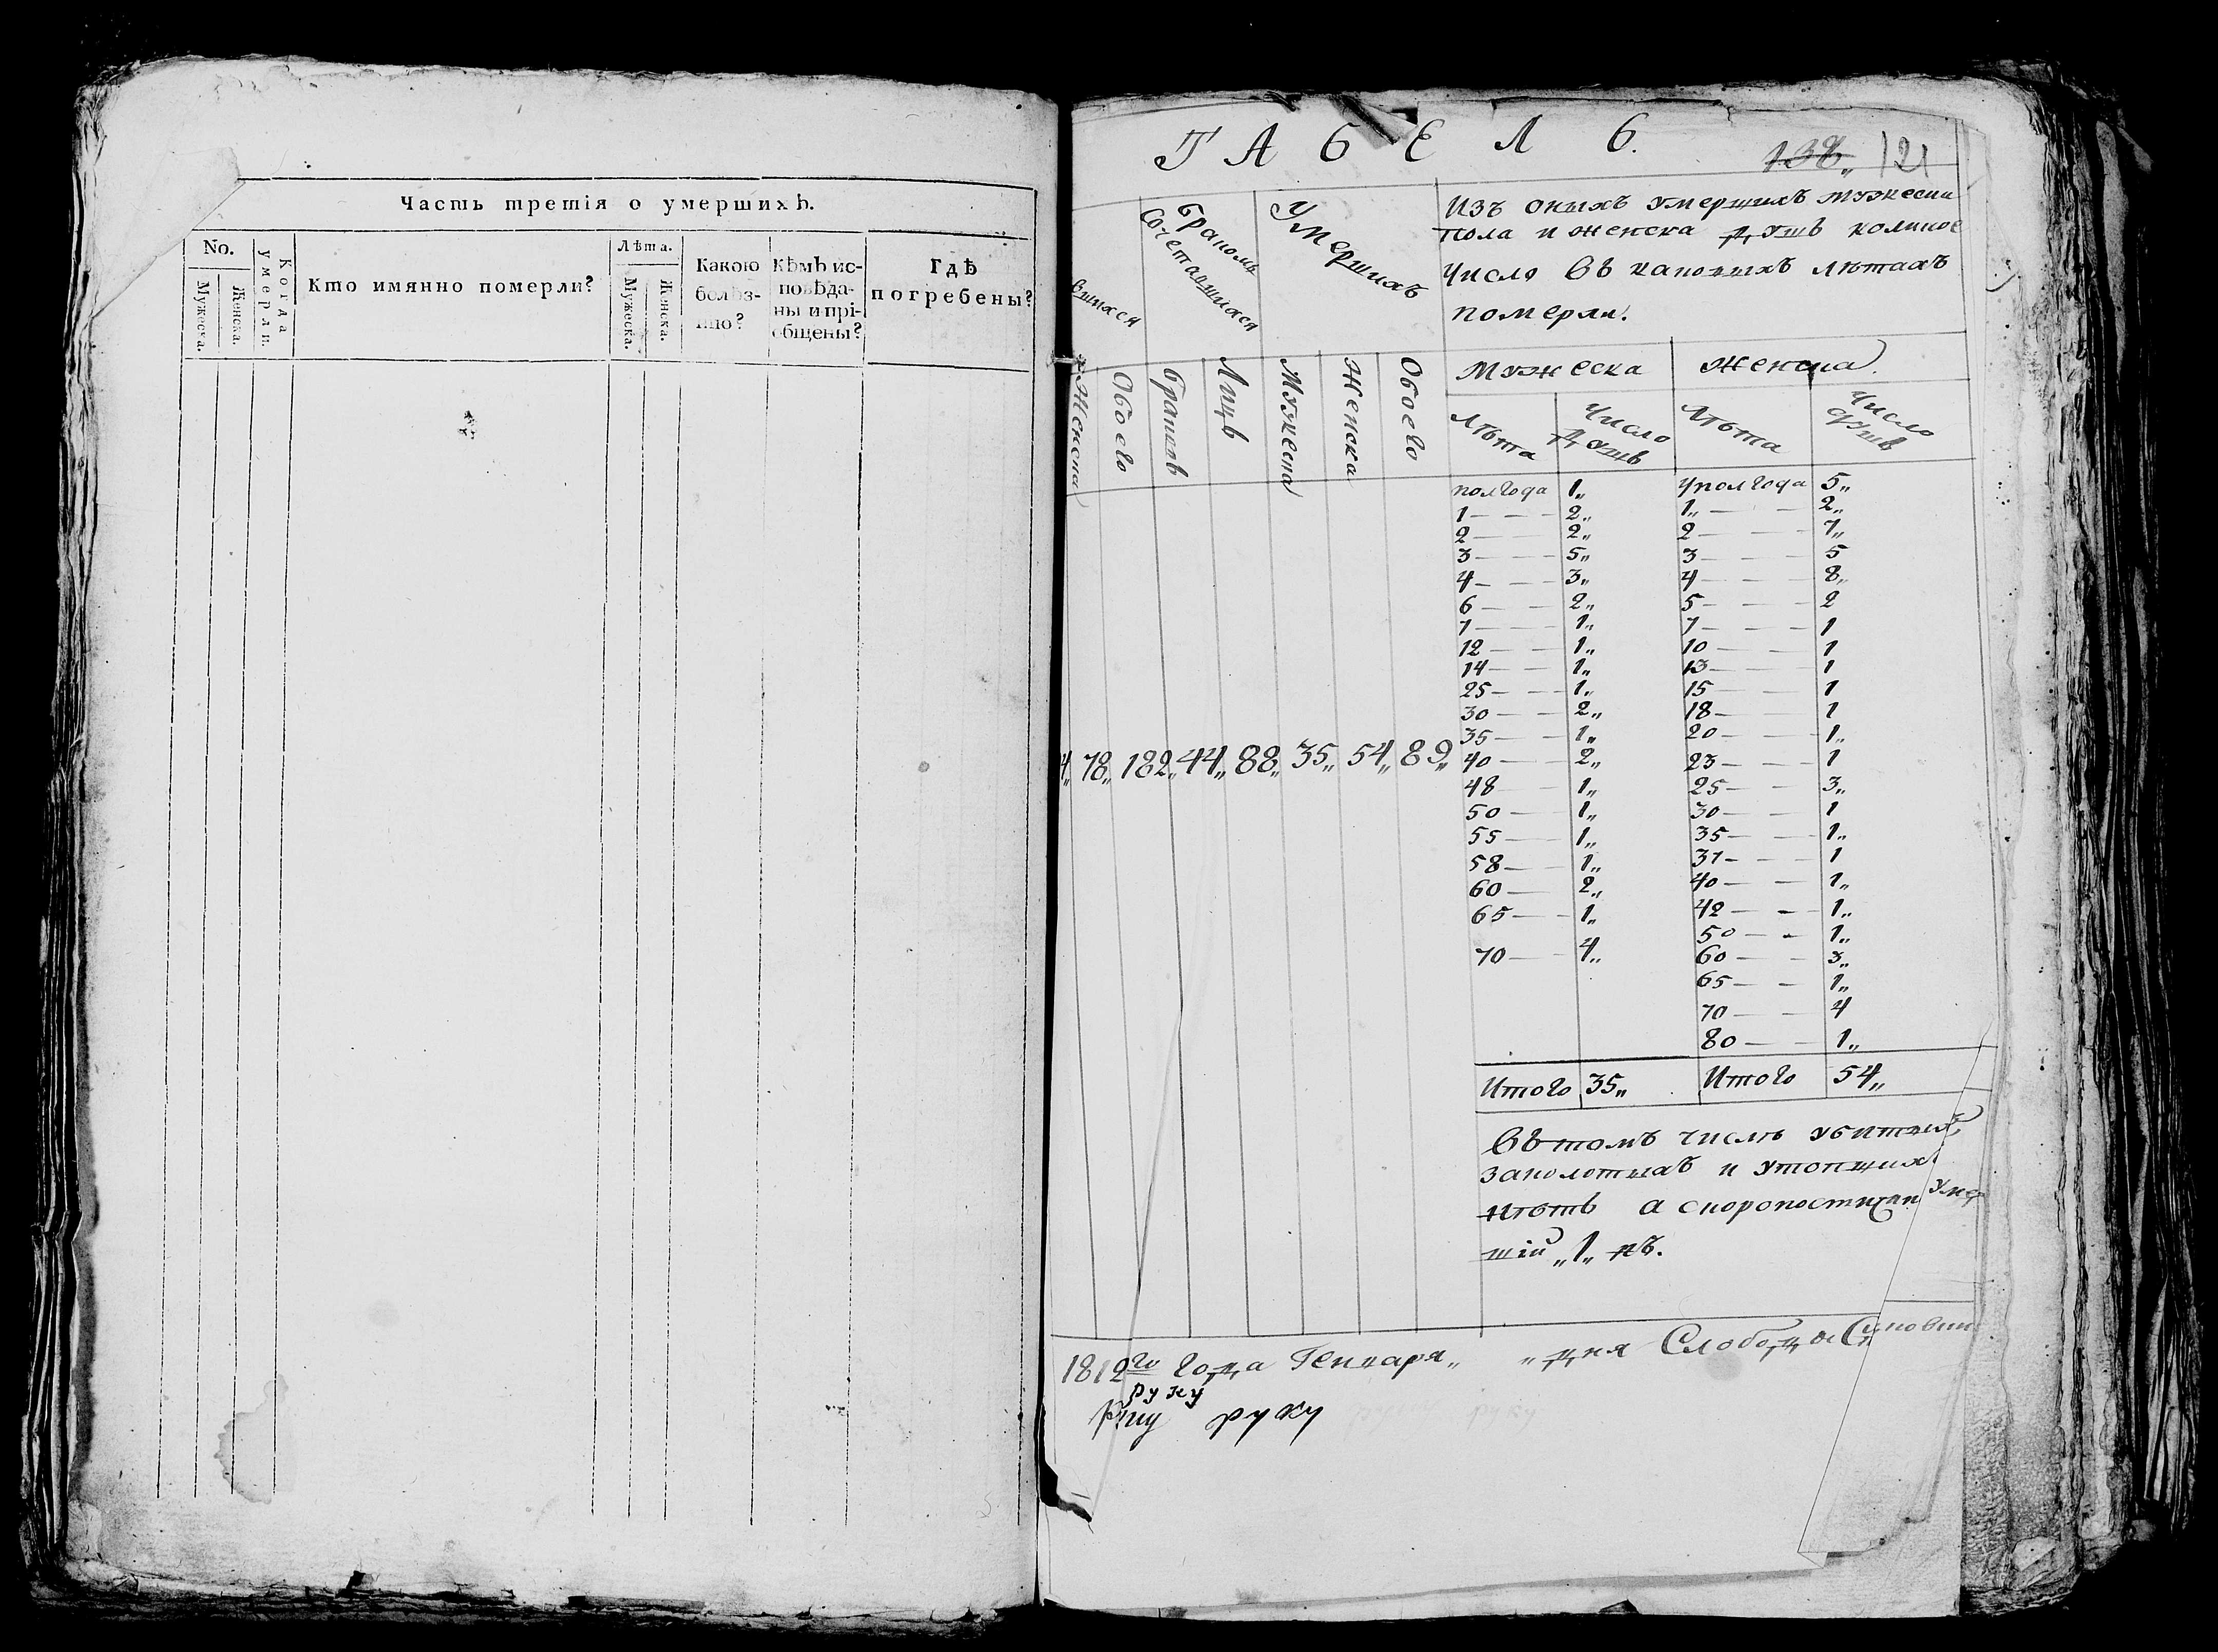 Часть третія о умершихъ.
No.
Мужеска.
Женска.
Когда умерли.
Кто имянно померли?
Лѣта.
Мужеска.
Женска.
Какою
болѣз-
нію?
Кѣмъ ис-
повѣда-
ны и прі-
общены?
Гдѣ
погребены?
ТАБЕЛЬ.
138„ 121
вшихся
бракомъ
Сочетавшихся
Умершихъ
Изъ оныхъ умершихъ мужеска
пола и женска душъ коликое
число въ каковыхъ лѣтахъ
померли.
Женска
Обоего
браковъ
Лицъ
Мужеска
Женска
Обоего
Мужеска Женска.
Лѣта
Число
душъ
Лѣта
Число
душъ
полгода 1„ Уполгода 5„
1 — — 2„ 1„ — — 2„
2 — — 2„ 2 — — 7„
3 — — 5„ 3 — — 5
4 — — 3„ 4 — — 8„
6 — — 2„ 5 — — 2
7 — — 1„ 7 — — 1
12 — — 1„ 10 — — 1
14 — — 1„ 13 — — 1
25 — — 1„ 15 — — 1
30 — — 2„ 18 — — 1
35 — — 1„ 20 — — 1„
40 — — 2„ 23 — — 1
48 — 1„ 25 — — 3„
50 — 1„ 30 — — 1
55 — 1„ 35 — — 1„
58 — 1„ 37 — — 1
60 — 2„ 40 — — 1„
65 — — 1„ 42 — — 1„
50 — — 1„
70 — — 4„ 60 — — 3„
65 — — 1„
70 — — 4
80 — — 1„
4„ 78„ 182„ 44„ 88„ 35„ 54„ 89„
Итого 35„ Итого 54„
Въ томъ числѣ убитыхъ
заколотыхъ и утопших
нѣтъ а скоропостижн уме
шій „1„ нъ.
1812го года Генваря„ „дня Слободы
руку
руку